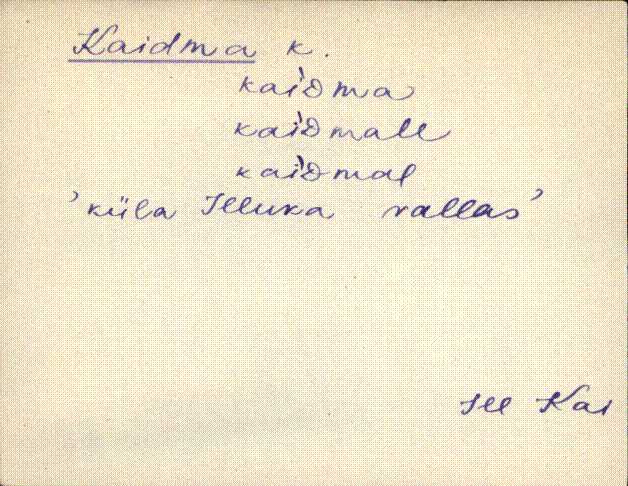 Kaidma k.
kaìdma
kaìdmall
kaìdmal
'küla Illuka vallas'
Ill Kai